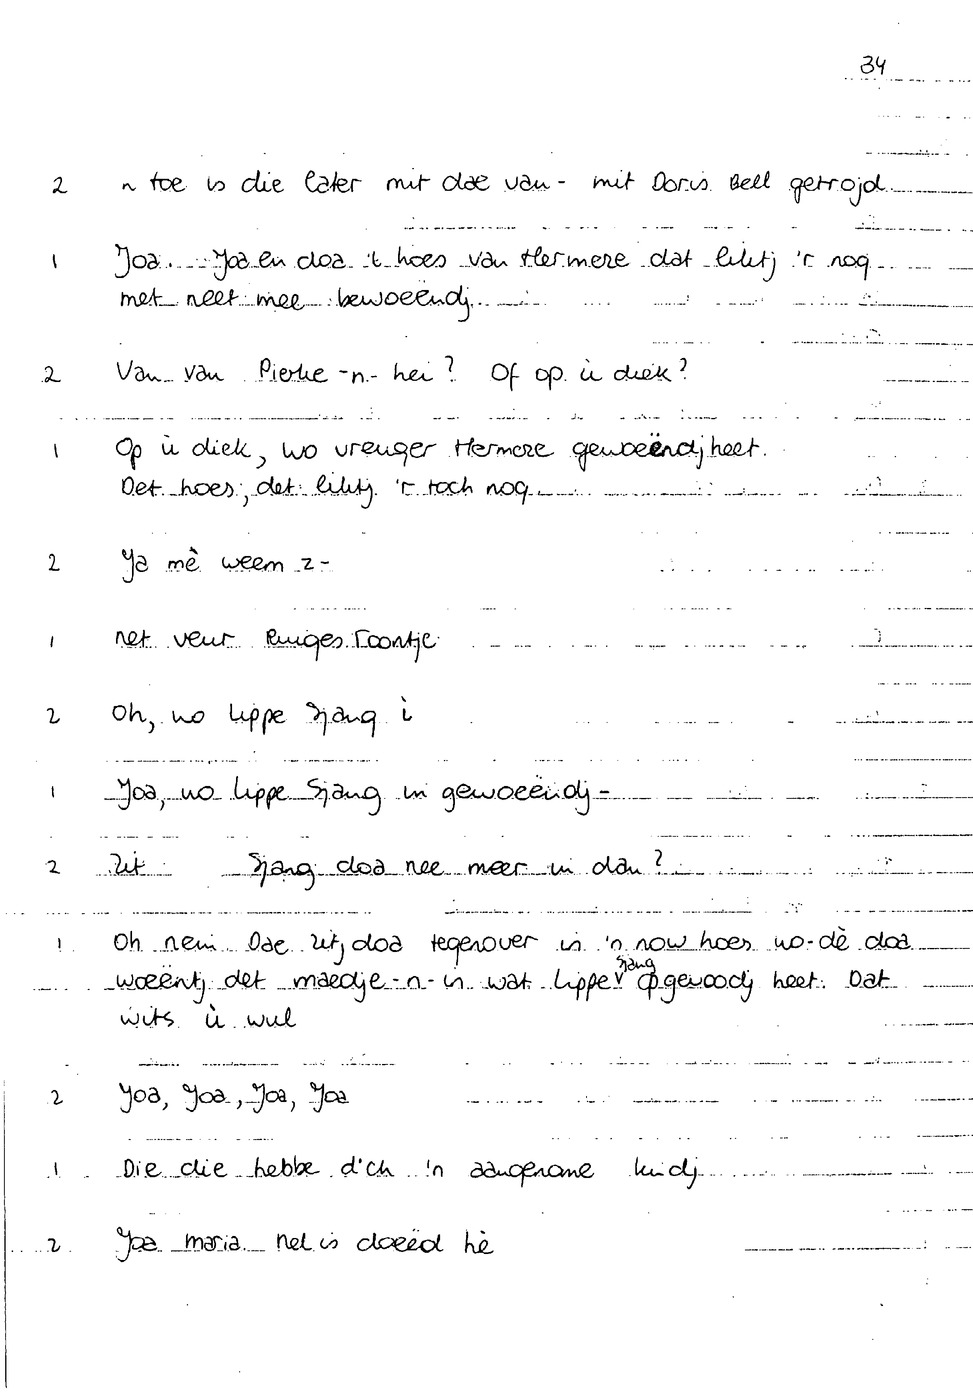 34
2 n toe is die later mit dae van - mit Doris Bell getrojd
1 Joa. Joa en doa 't hoes van Hermere dat liktj 'r nog
met neet mee bewoeëndj
2 Van van Pierke -n- hei? Of op ù diek?
1 Op ù diek, wo vreuger Hermere gewoeëndj heet.
Det hoes, det liktj 'r toch nog
2 Ja mè weem z-
1 net veur Ruiges Toontje
2 Oh, wo Lippe Sjang i
1 Joa, wo Lippe Sjang in gewoeëndj -
2 Zit Sjang doa nee meer in dan?
1 Oh nein Dae zitj doa tegenover in 'n now hoes wo-dè doa
woeëntj det maedje -n- in wat Lippe Sjang opgevoodj heet. Dat
wits ù wul
2 Joa, Joa, Joa, Joa
1 Die die hebbe d'ch 'n aangenome kindj
2 Joa maria nel is doeëd hè